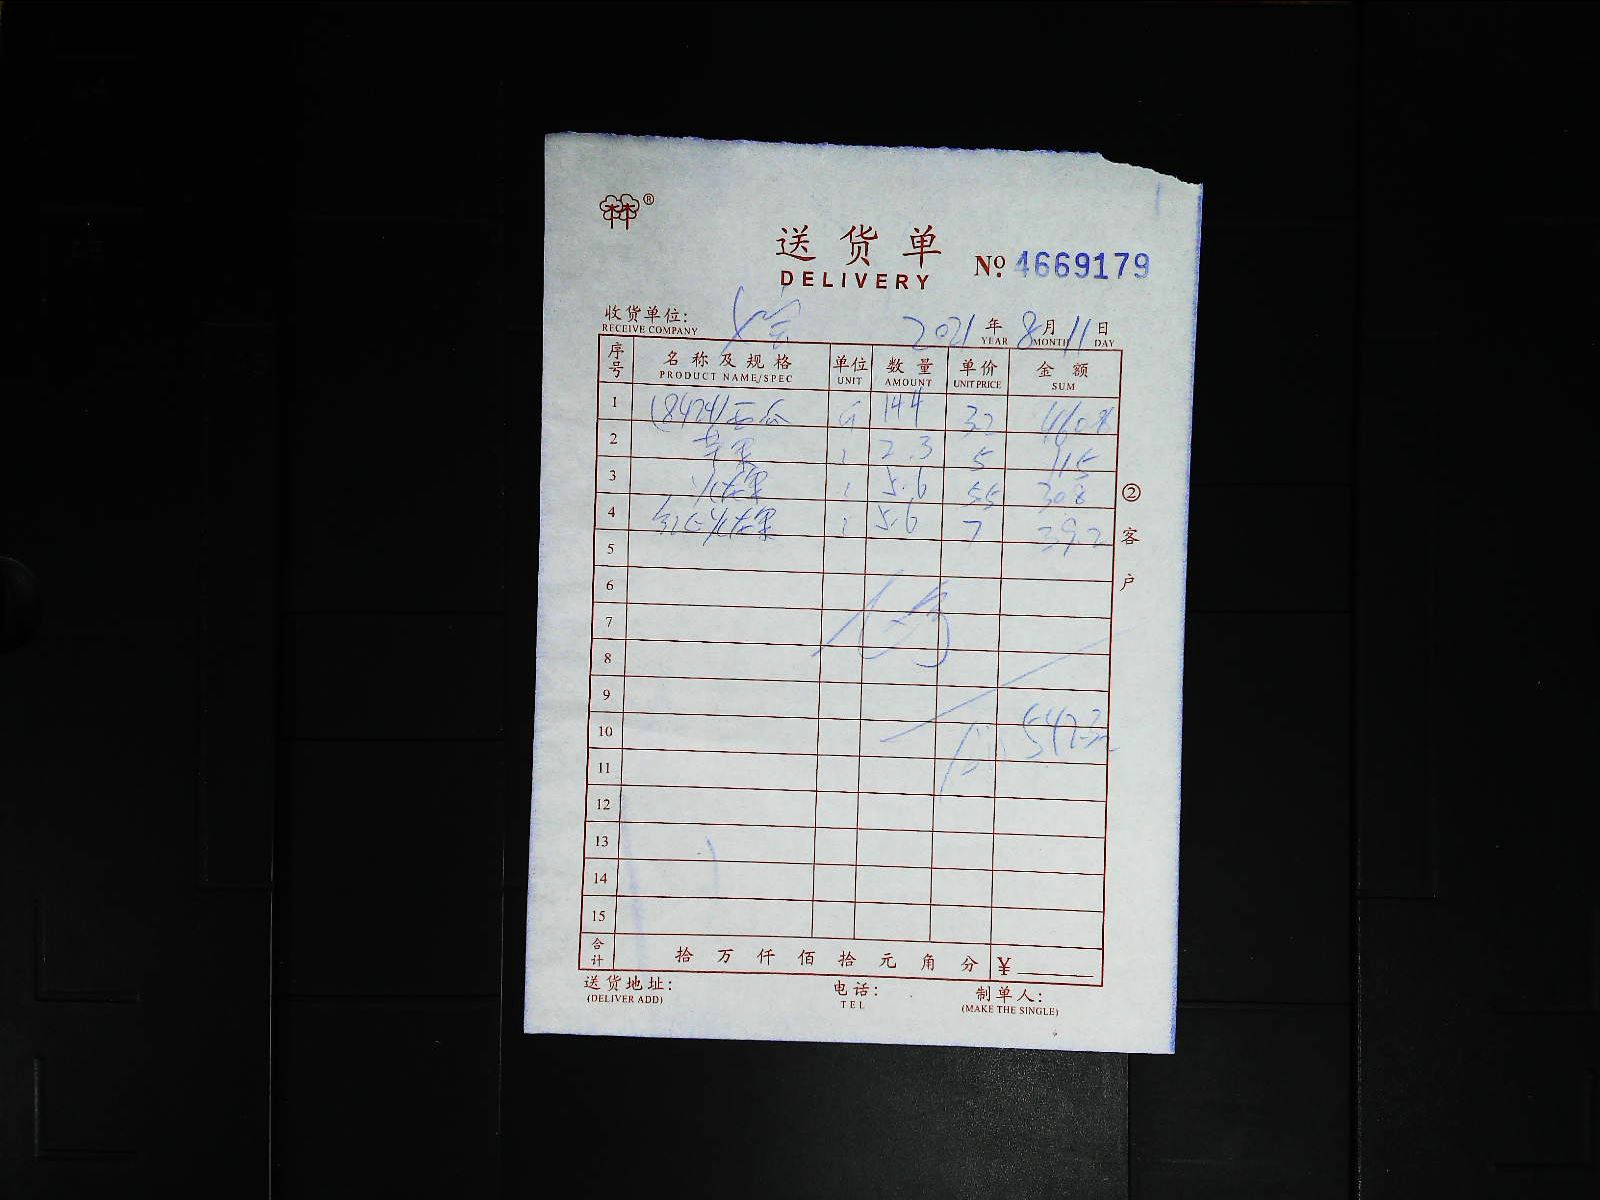 林®
送货单
DELIVERY
No. 4669179
收货单位:
RECEIVE COMPANY
2021 年 8 月 11 日
YEAR MONTH DAY
序号 名称及规格 单位 数量 单价 金额
PRODUCT NAME/SPEC UNIT AMOUNT UNIT PRICE SUM
1 (8424)西瓜 斤 144 32
2 2.3 5 115
3 火龙果 5.6 55 308
4 红心火龙果 5.6 7 39.2
5
6
7
8
9
10
11
12
13
14
15
合计 拾 万 仟 佰 拾 元 角 分 ¥
送货地址: 电话: 制单人:
(DELIVER ADD) TEL (MAKE THE SINGLE)
② 客户